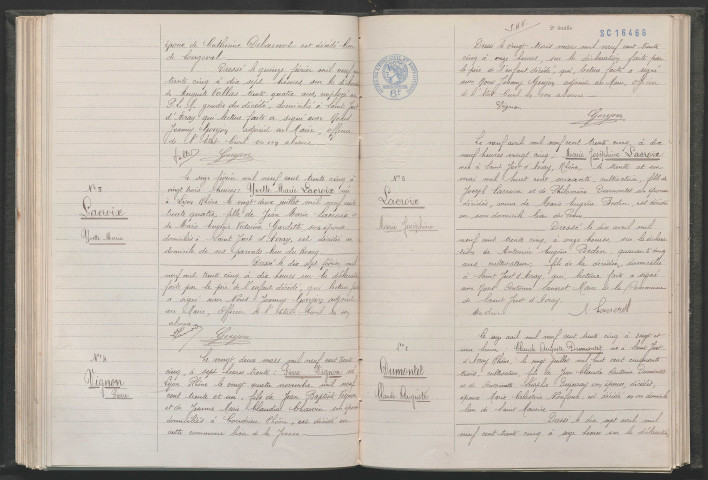 époux de Catherine Delarivol est décédé lieu
de Longeval
Dressé le quinze février mil neuf cent
trente cinq à dix sept heures sur la déclaration
de trente quatre ans, employé au
P.L.M. gendre du décédé, domicilié à Saint Just
d'Avray qui lecture faite a signé avec Nous
Jeanny Goyon adjoint au Maire, officier
de l'Etat Civil en son absence
Goyon
N° 3
Lacroix
Yvette Marie
Le seize février mil neuf cent trente cinq à
vingt trois heures, Yvette Marie Lacroix née
à Lyon Rhône le vingt deux juillet mil neuf cent
trente quatre, fille de Jean Marie Lacroix et
de Marie Victorine Gardette son épouse
domiciliés à Saint Just d'Avray, est décédée au
domicile de ses parents lieu du Bourg
Dressé le dix sept février mil
neuf cent trente cinq à dix heures sur la déclaration
faite par le père de l'enfant décédé, qui lecture faite
a signé avec Nous Jeanny Goyon adjoint au
Maire, officier de l'Etat Civil en son
absence
Goyon
N° 4
Vignon
Pierre
Le vingt deux mars mil neuf cent trente
cinq, à sept heures trente, Pierre Vignon né
Lyon Rhône le vingt quatre novembre mil neuf
cent trente et un, fils de Jean Baptiste Vignon
et de Jeanne Marie Claudia son épouse
domiciliés à Rhône, est décédé en
cette commune lieu de la
2e feuille
SC16466
6F
Dressé le vingt trois mars mil neuf cent trente
cinq à onze heures, sur la déclaration faite par
le père de l'enfant décédé, qui lecture faite a signé
avec Nous Jeanny Goyon adjoint au Maire, officier
de l'Etat Civil en son absence
Vignon
Goyon
N° 5
Lacroix
Marie Joséphine
Le neuf avril mil neuf cent trente cinq, à dix
neuf heures vingt cinq, Marie Joséphine Lacroix
née à Saint Just d'Avray, Rhône, le trente et un
mai mil huit cent soixante, cultivatrice, fille de
Joseph Lacroix et de Philomène Dumontet son épouse
décédés, veuve de Marie Eugène Perdon, est décédée
en son domicile lieu de
Dressé le dix avril mil
neuf cent trente cinq, à onze heures, sur la déclaration
de Antonin Eugène Perdon, quarante cinq
ans cultivateur, fils de la décédée, domicilié
à Saint Just d'Avray, qui lecture faite a signé
avec Nous Antonin Lauret Maire de la Commune
de Saint Just d'Avray
Lauret
N° 6
Dumontet
Claude Auguste
Le seize avril mil neuf cent trente cinq à vingt et
une heures, Claude Auguste Dumontet, né à Saint Just
d'Avray Rhône, le vingt juillet mil huit cent cinquante
trois, cultivateur, fils de Jean Claude Antoine Dumontet
et de son épouse, décédés,
époux Marie Célestine est décédé en son domicile
lieu de
Dressé le dix sept avril mil
neuf cent trente cinq à seize heures sur la déclaration